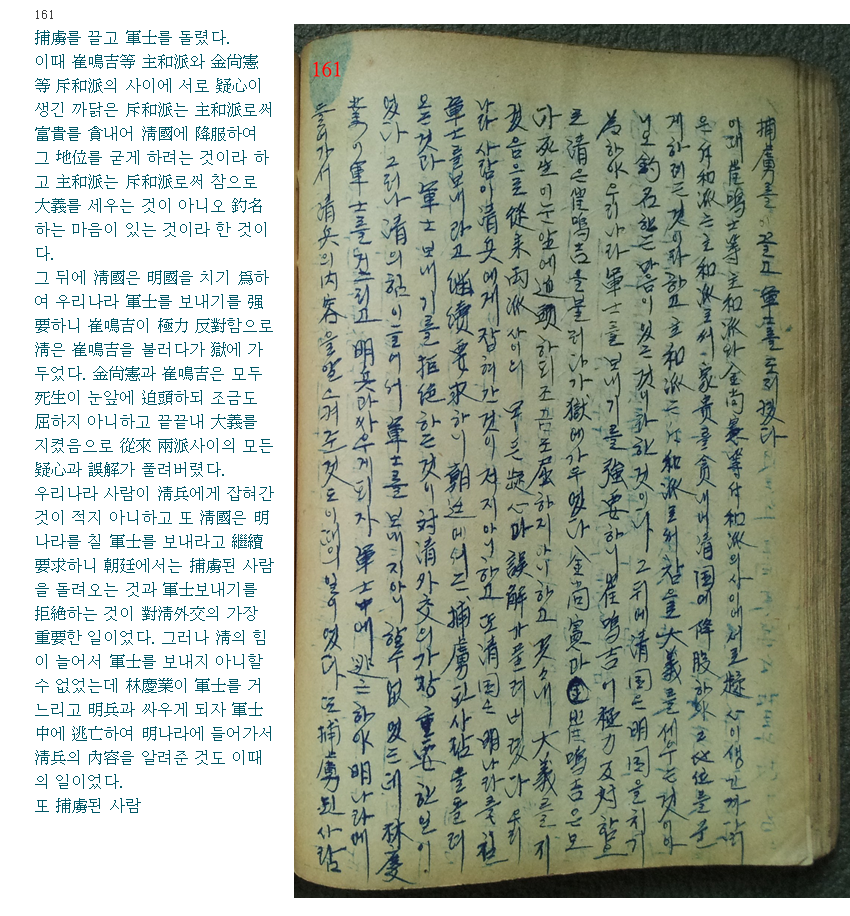 161
捕虜를 끌고 軍士를 돌렸다.
이때 崔鳴吉等 主和派와 金尙憲
等 斥和派의 사이에 서로 疑心이
생긴 까닭은 斥和派는 主和派로써
富貴를 貪내어 淸國에 降服하여
그 地位를 굳게 하려는 것이라 하
고 主和派는 斥和派로써 참으로
大義를 세우는 것이 아니오 釣名
하는 마음이 있는 것이라 한 것이
다.
그 뒤에 淸國은 明國을 치기 爲하
여 우리나라 軍士를 보내기를 强
要하니 崔鳴吉이 極力 反對함으로
淸은 崔鳴吉을 불러다가 獄에 가
두었다. 金尙憲과 崔鳴吉은 모두
死生이 눈앞에 迫頭하되 조금도
屈하지 아니하고 끝끝내 大義를
지켰음으로 從來 兩派사이의 모든
疑心과 誤解가 풀려버렸다.
우리나라 사람이 淸兵에게 잡혀간
것이 적지 아니하고 또 淸國은 明
나라를 칠 軍士를 보내라고 繼續
要求하니 朝廷에서는 捕虜된 사람
을 돌려오는 것과 軍士보내기를
拒絶하는 것이 對淸外交의 가장
重要한 일이었다. 그러나 淸의 힘
이 늘어서 軍士를 보내지 아니할
수 없었는데 林慶業이 軍士를 거
느리고 明兵과 싸우게 되자 軍士
中에 逃亡하여 明나라에 들어가서
淸兵의 內容을 알려준 것도 이때
의 일이었다.
또 捕虜된 사람
161
捕虜를 끌고 軍士를 돌리였다
이때 崔鳴吉等 主和派와 金尙憲等 斥和派의 사이에 서로 疑心이 생긴 까닭
은 斥和派는 主和派로써 富貴를 貪내어 清国에 降服하야 그 地位를 굳
게 하려는 것이라 하고 主和派는 斥和派로써 참으로 大義를 세우는 것이 아
니오 釣名하는 마음이 있는 것이라 한 것이다 그 뒤에 清国은 明国을 치기
爲하야 우리나라 軍士를 보내기를 強要하니 崔鳴吉이 極力 反対함으
로 清은 崔鳴吉을 불러다가 獄에 가두었다 金尙憲과 崔鳴吉은 모
다 死生이 눈앞에 迫頭하되 조금도 屈하지 아니하고 끝끝내 大義를 지
켰음으로 從来 両派 사이의 모든 疑心과 誤解가 풀려버렸다 우리
나라 사람이 清兵에게 잡혀간 것이 적지 아니하고 또 清国은 明나라를 칠
軍士를 보내라고 継続要求하니 朝廷에서는 捕虜된 사람을 돌려
오는 것과 軍士 보내기를 拒絶하는 것이 対清外交의 가장 重要한 일이
었다 그러나 清의 힘이 늘어서 軍士를 보내지 아니할수 없었는데 林慶
業이 軍士를 거느리고 明兵과 싸우게 되자 軍士中에 逃亡하야 明나라에
들어가서 清兵의 内容을 알으켜준 것도 이때의 일이었다 또 捕虜된 사람